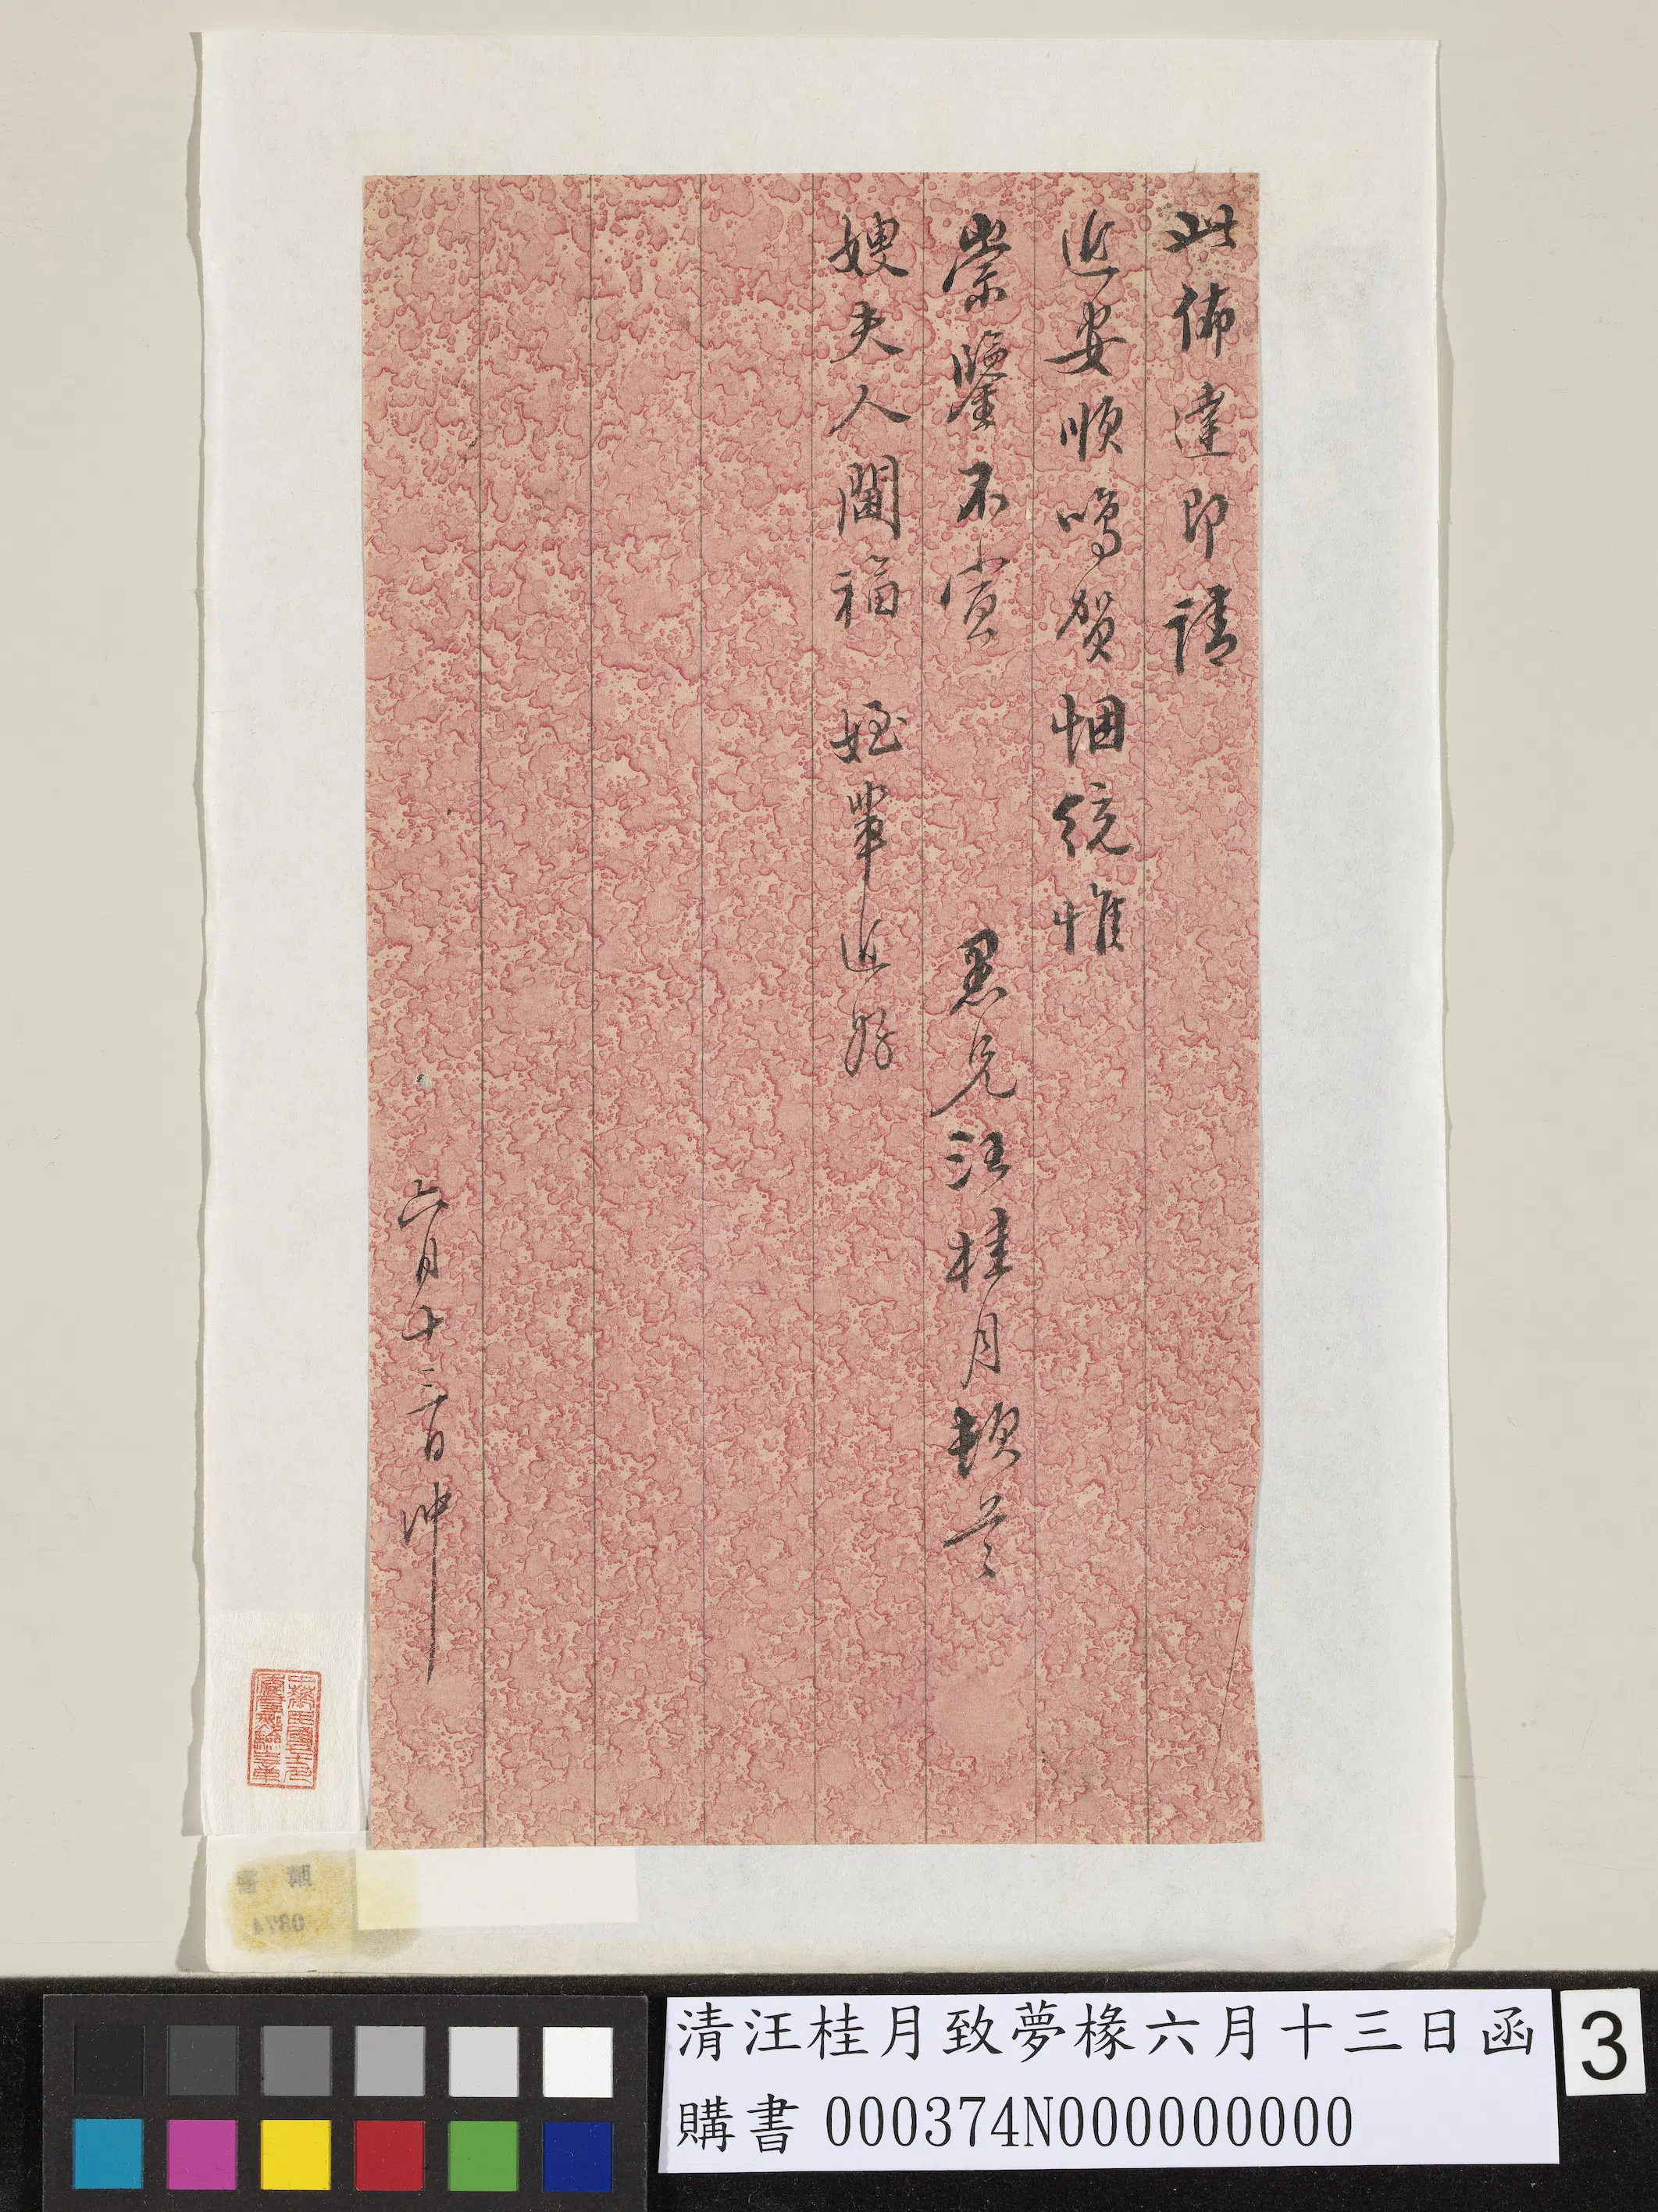 此佈達即請
近安順鳴賀悃統惟
崇鑒不宣 愚兄汪桂月頓首
嫂夫人閫福 姪輩近好
六月十三日沖
清汪桂月致夢椽六月十三日函
購書 000374N000000000
3